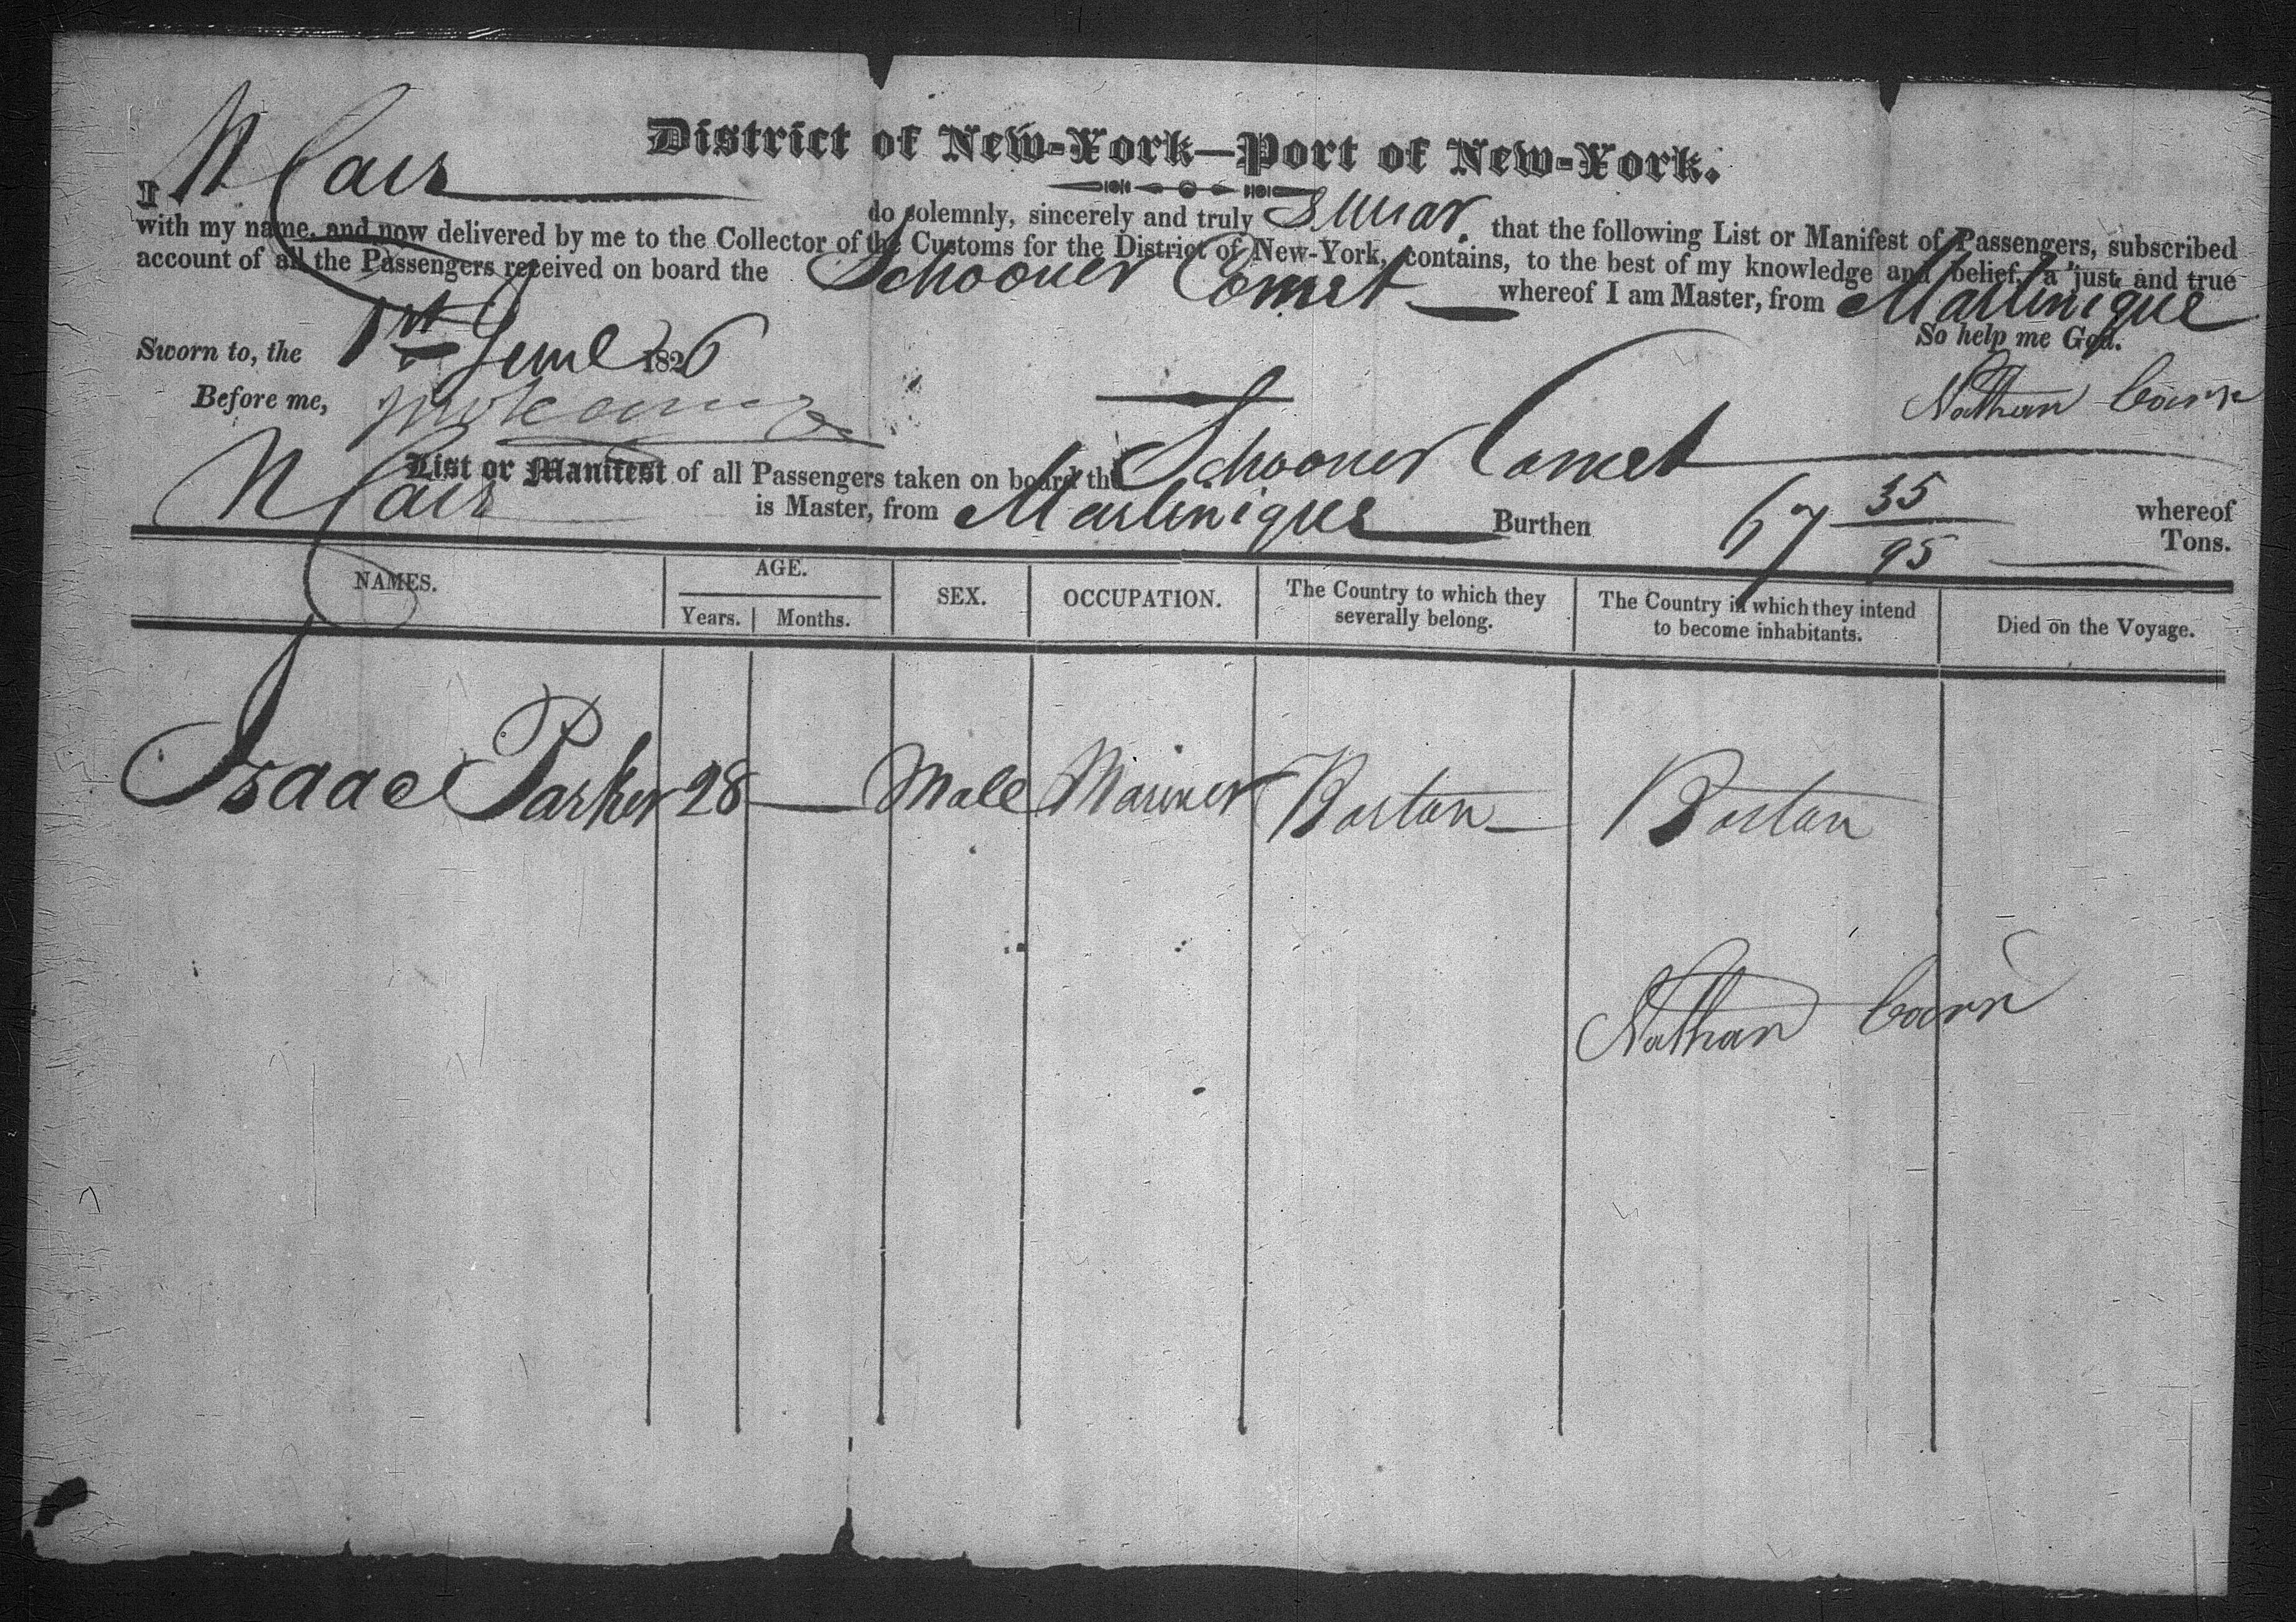 District of New-York—Port of New-York.
I N Carr do solemnly, sincerely and truly Swear, that the following List or Manifest of Passengers, subscribed
with my name, and now delivered by me to the Collector of the Customs for the District of New-York, contains, to the best of my knowledge and belief, a just and true
account of all the Passengers received on board the Schooner Comet whereof I am Master, from Martinique
So help me God.
Sworn to, the 1st June 1826
Before me,
Nathan Carr
List or Manifest of all Passengers taken on board the Schooner Comet whereof
N Carr is Master, from Martinique Burthen 67 35/95 Tons.
NAMES. AGE. SEX. OCCUPATION. The Country to which they severally belong. The Country in which they intend to become inhabitants. Died on the Voyage.
Years. Months.
Isaac Parker 28 — Male Mariner Boston Boston
Nathan Carr